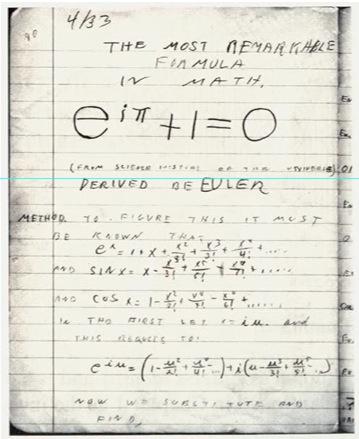 4/33
THE MOST REMARKABLE
FORMULA
IN MATH.
e^{iπ} + 1 = 0
(FROM SCIENCE HISTORY OF THE UNIVERSE)
DERIVED BE EULER
METHOD TO FIGURE THIS IT MUST
BE KNOWN THAT
e^x = 1 + x + x²/2! + x³/3! + x⁴/4! + ....
AND SIN X = X - x³/3! + x⁵/5! - x⁷/7! + .....
AND COS X = 1 - x²/2! + x⁴/4! - x⁶/6! + .....
IN THE FIRST LET X = iu. and
THIS REDUCES TO:
e^{iu} = (1 - u²/2! + u⁴/4! ...) + i(u - u³/3! + u⁵/5! ...)
NOW WE SUBSTITUTE AND
FIND,